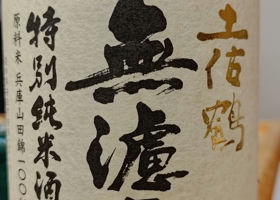 土佐鶴
無濾
特別純米酒
原料米 兵庫山田錦一〇〇